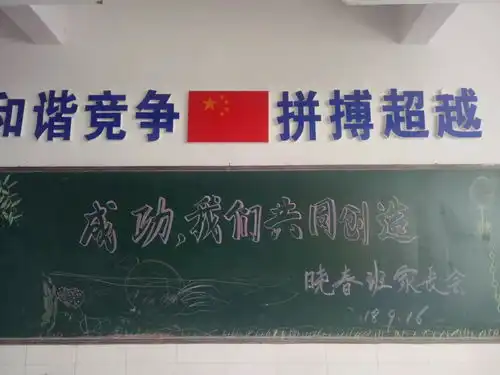 和谐竞争 拼搏超越
成功,我们共同创造
晓春班家长会
18.9.16